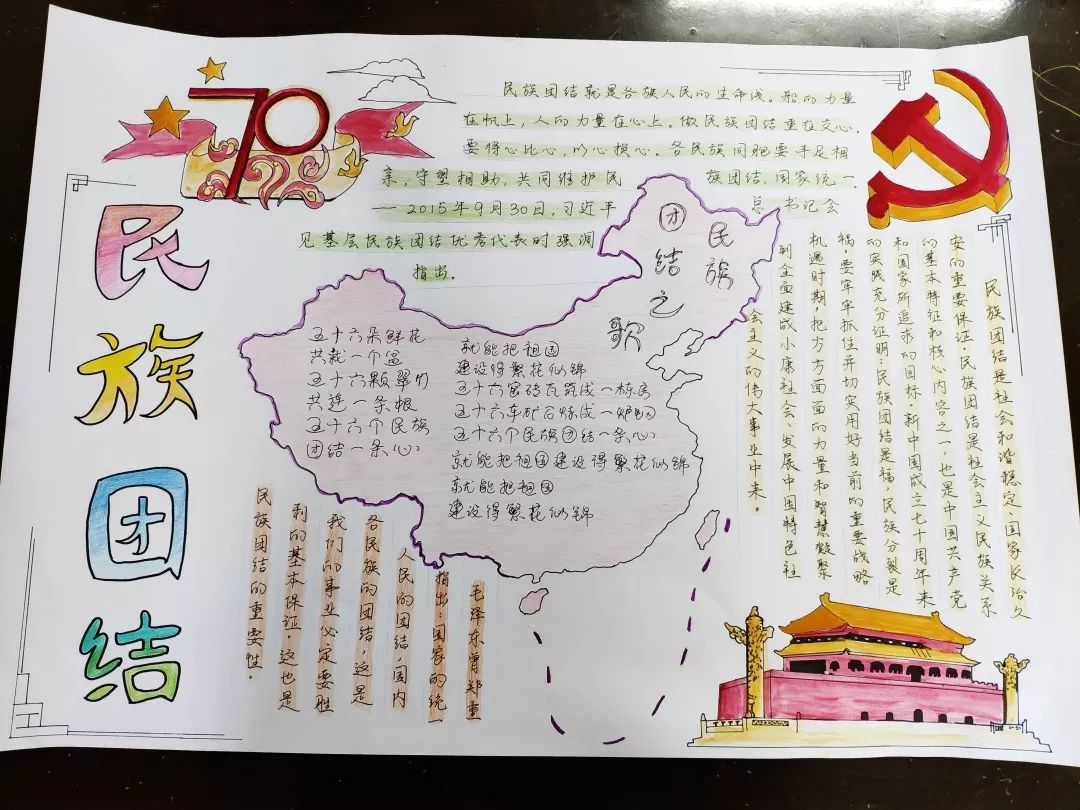 民族团结
70
民族团结就是各族人民的生命线。船的力量
在帆上，人的力量在心上。做民族团结重在交心，
要将心比心，以心换心。各民族同胞要手足相
亲，守望相助，共同维护民族团结，国家统一。
——2015年9月30日，习近平总书记会
见基层民族团结优秀代表时强调
指出。
民族
团结之歌
五十六朵鲜花
共栽一个盆
五十六颗翠竹
共连一条根
五十六个民族
团结一条心
就能把祖国
建设得繁花似锦
五十六窑砖瓦筑成一栋房
五十六车矿石炼成一炉钢
五十六个民族团结一条心
就能把祖国建设得繁花似锦
就能把祖国
建设得繁花似锦
民族团结是社会和谐稳定、国家长治久
安的重要保证。民族团结是社会主义民族关系
的基本特征和核心内容之一，也是中国共产党
和国家所追求的目标。新中国成立七十周年来
的实践充分证明：民族团结是福，民族分裂是
祸，要牢牢抓住并切实用好当前的重要战略
机遇时期，把方方面面的力量和智慧凝聚
到全面建成小康社会、发展中国特色社
会主义的伟大事业中来。
毛泽东曾郑重
指出：国家的统一
人民的团结，国内
各民族的团结，这是
我们的事业必定要胜
利的基本保证。这也是
民族团结的重要性。